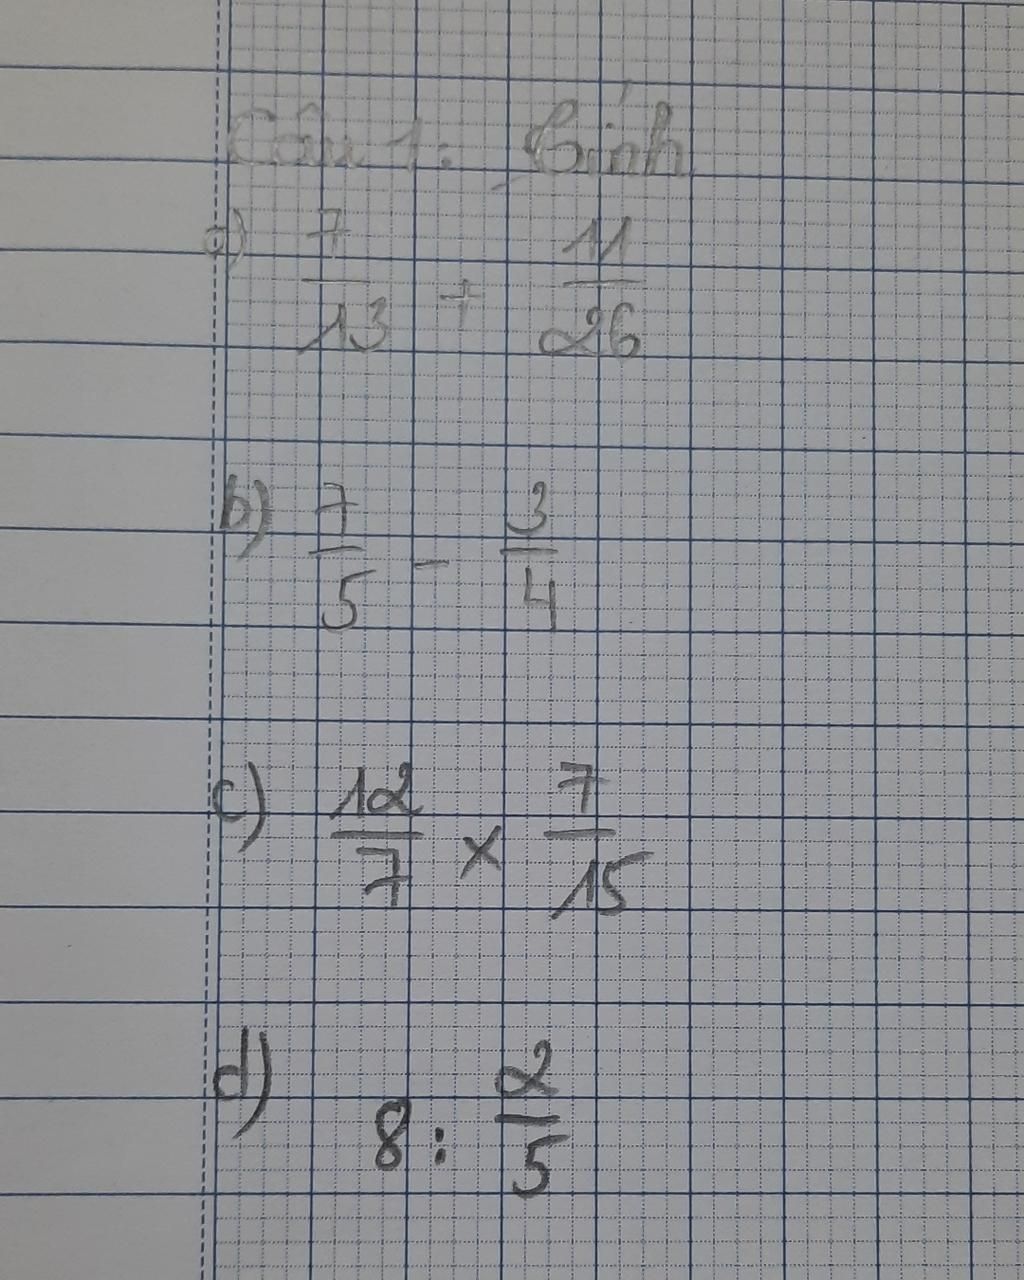 Câu 1: Tính
a) 7/13 + 11/26
b) 7/5 - 3/4
c) 12/7 x 7/15
d) 8 : 2/5